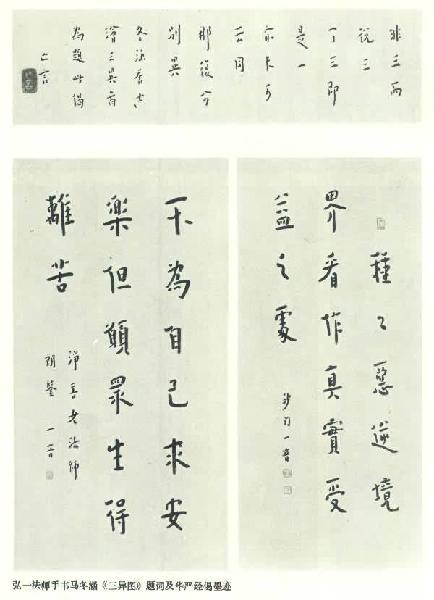 非三而
说三
了三即
是一
尚不可
云同
那復分
別異
冬涵居士
三異
為題此偈
亡言
種々惡逆境
界看作真實受
益之處
沙門一音
不為自己求安
樂但願眾生得
離苦
老法師
一音
弘一法师手书马冬涵《三异图》题词及华严经偈墨迹